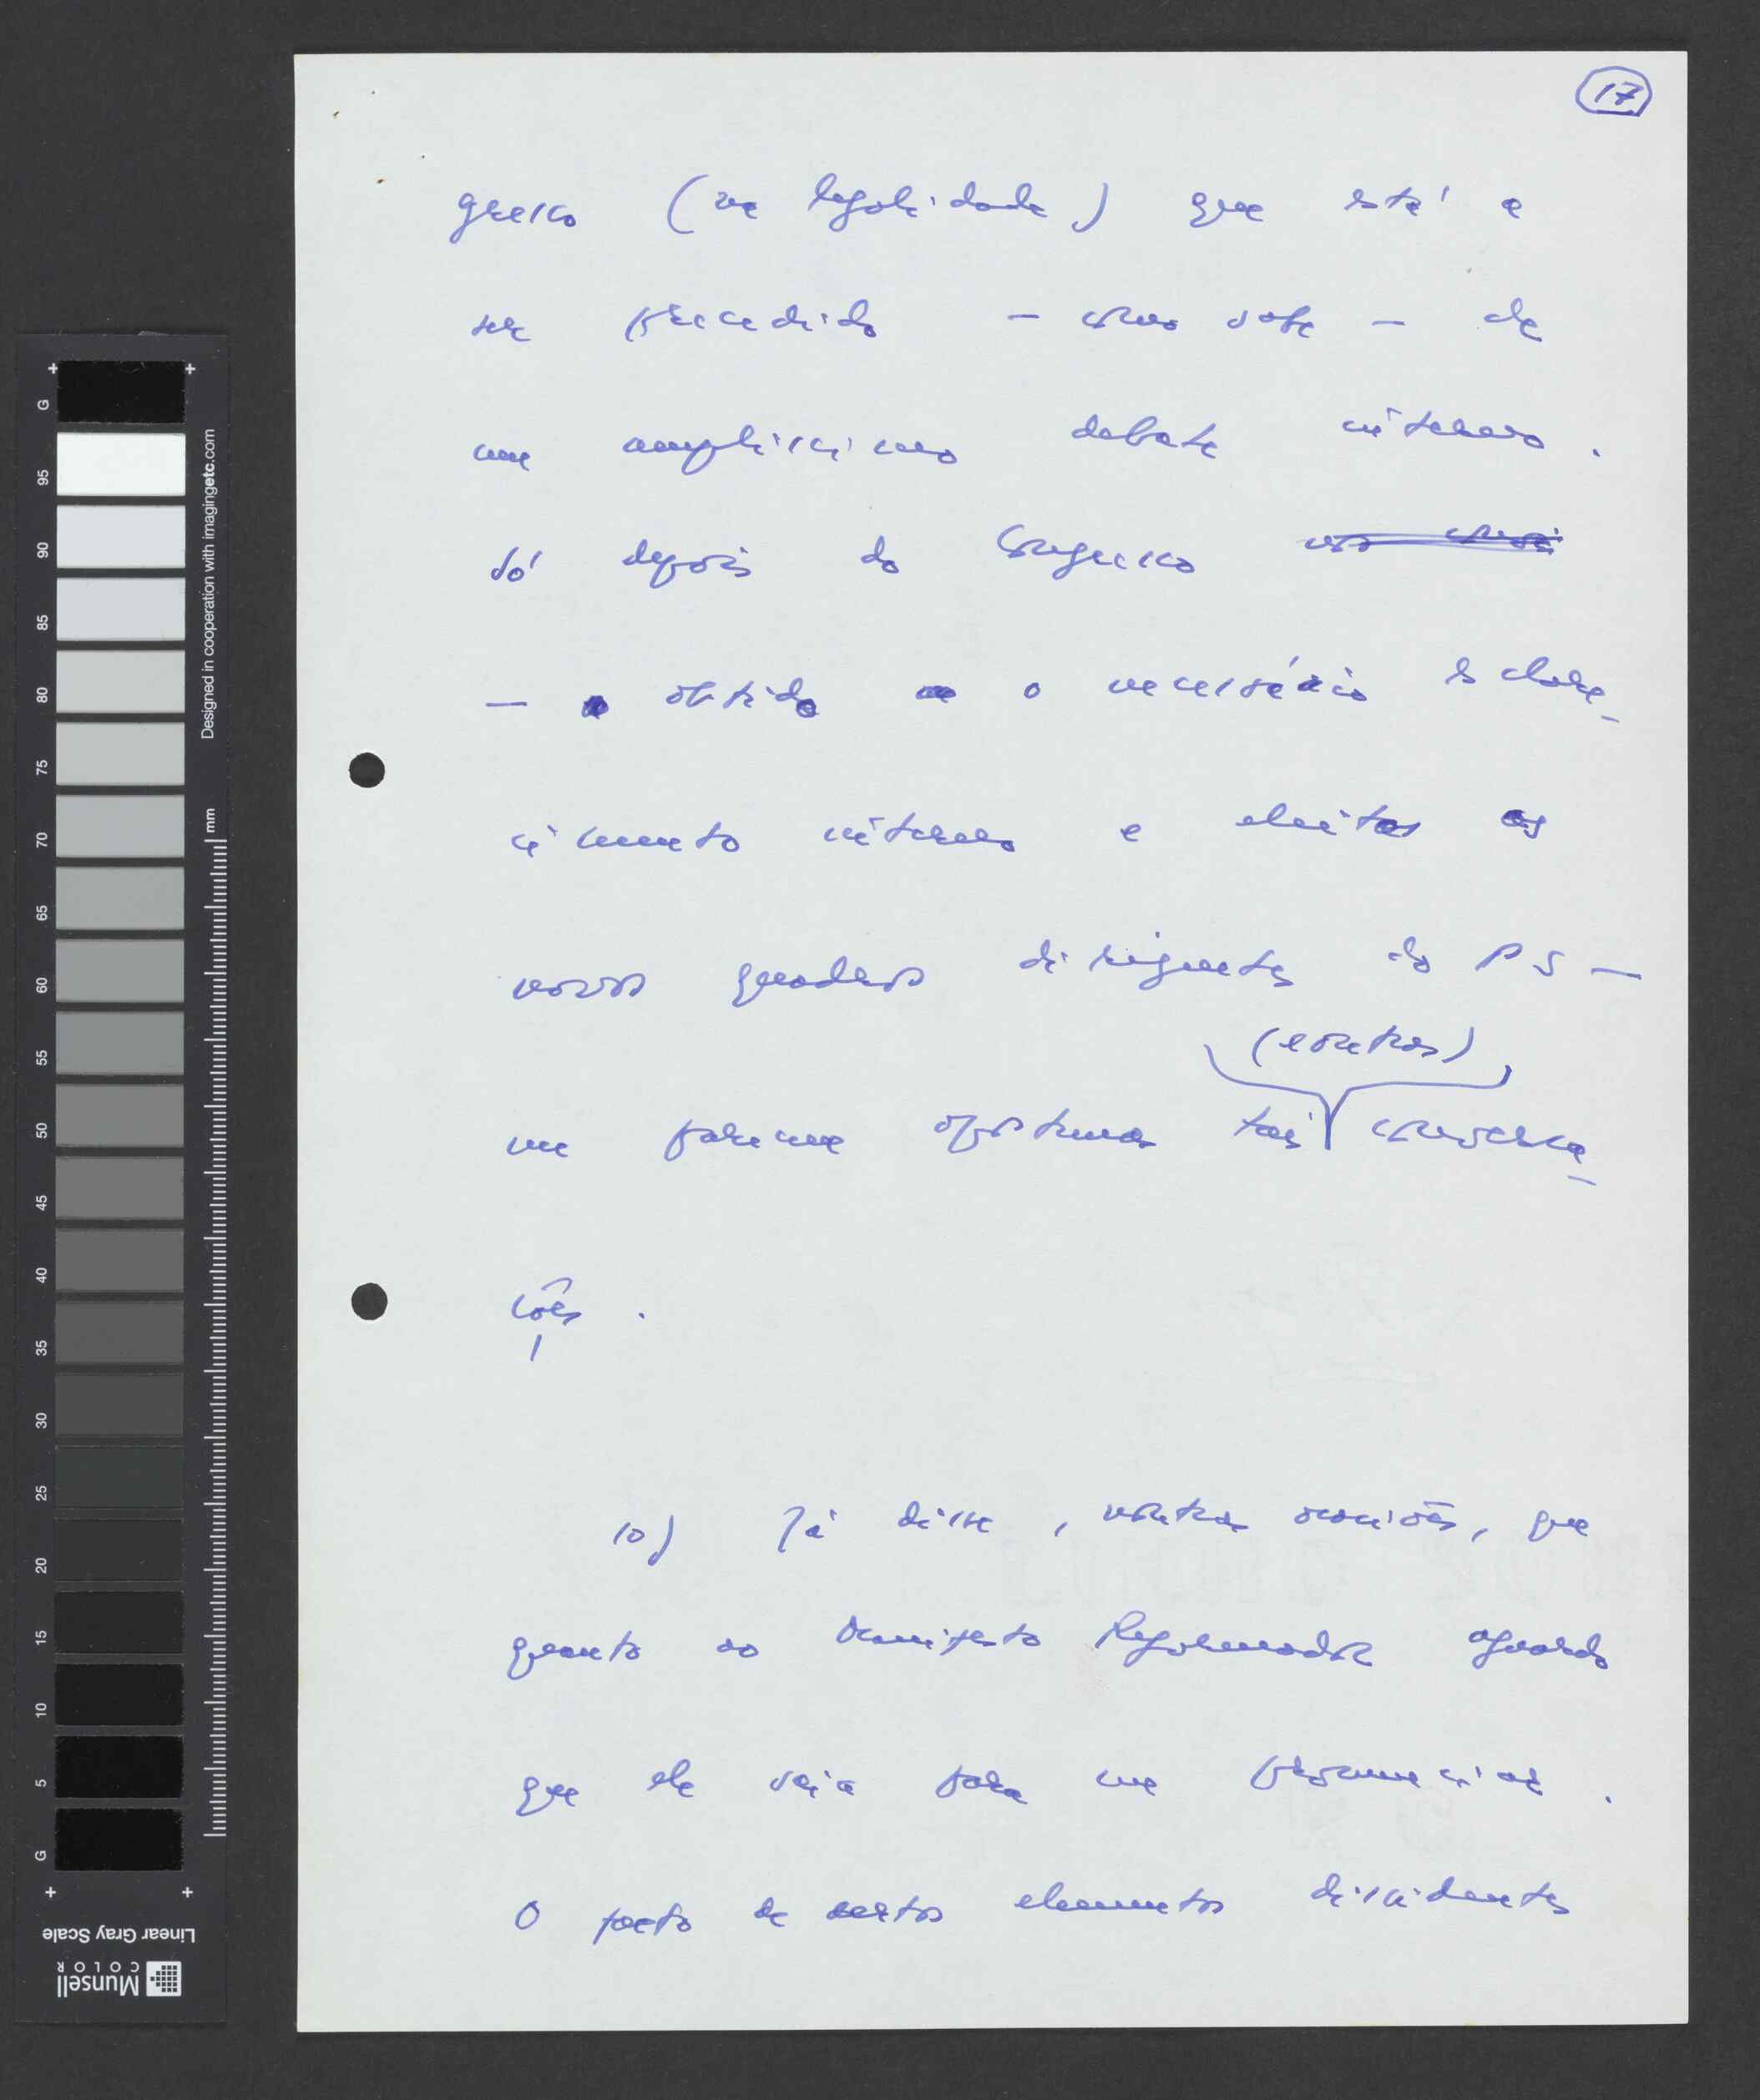 17
gresso (na legalidade) que está a
ser precedido - como sabe - de
um amplíssimo debate interno.
Só depois do Congresso
- obtido o necessário esclare_
cimento interno e eleitos os
novos quadros dirigentes do PS -
(e outras)
me parecem oportunas tais conversa_
ções.
10) Já disse, noutras ocasiões, que
quanto ao Manifesto Reformador aguardo
que ele saia para me pronunciar.
O facto de certos elementos dissidentes
+ +
G
95
90
85
80
75
70
65
60
55
50
45
40
35
30
25
20
15
10
5
G
+ +
Designed in cooperation with imagingetc.com
mm
Linear Gray Scale
Munsell
COLOR